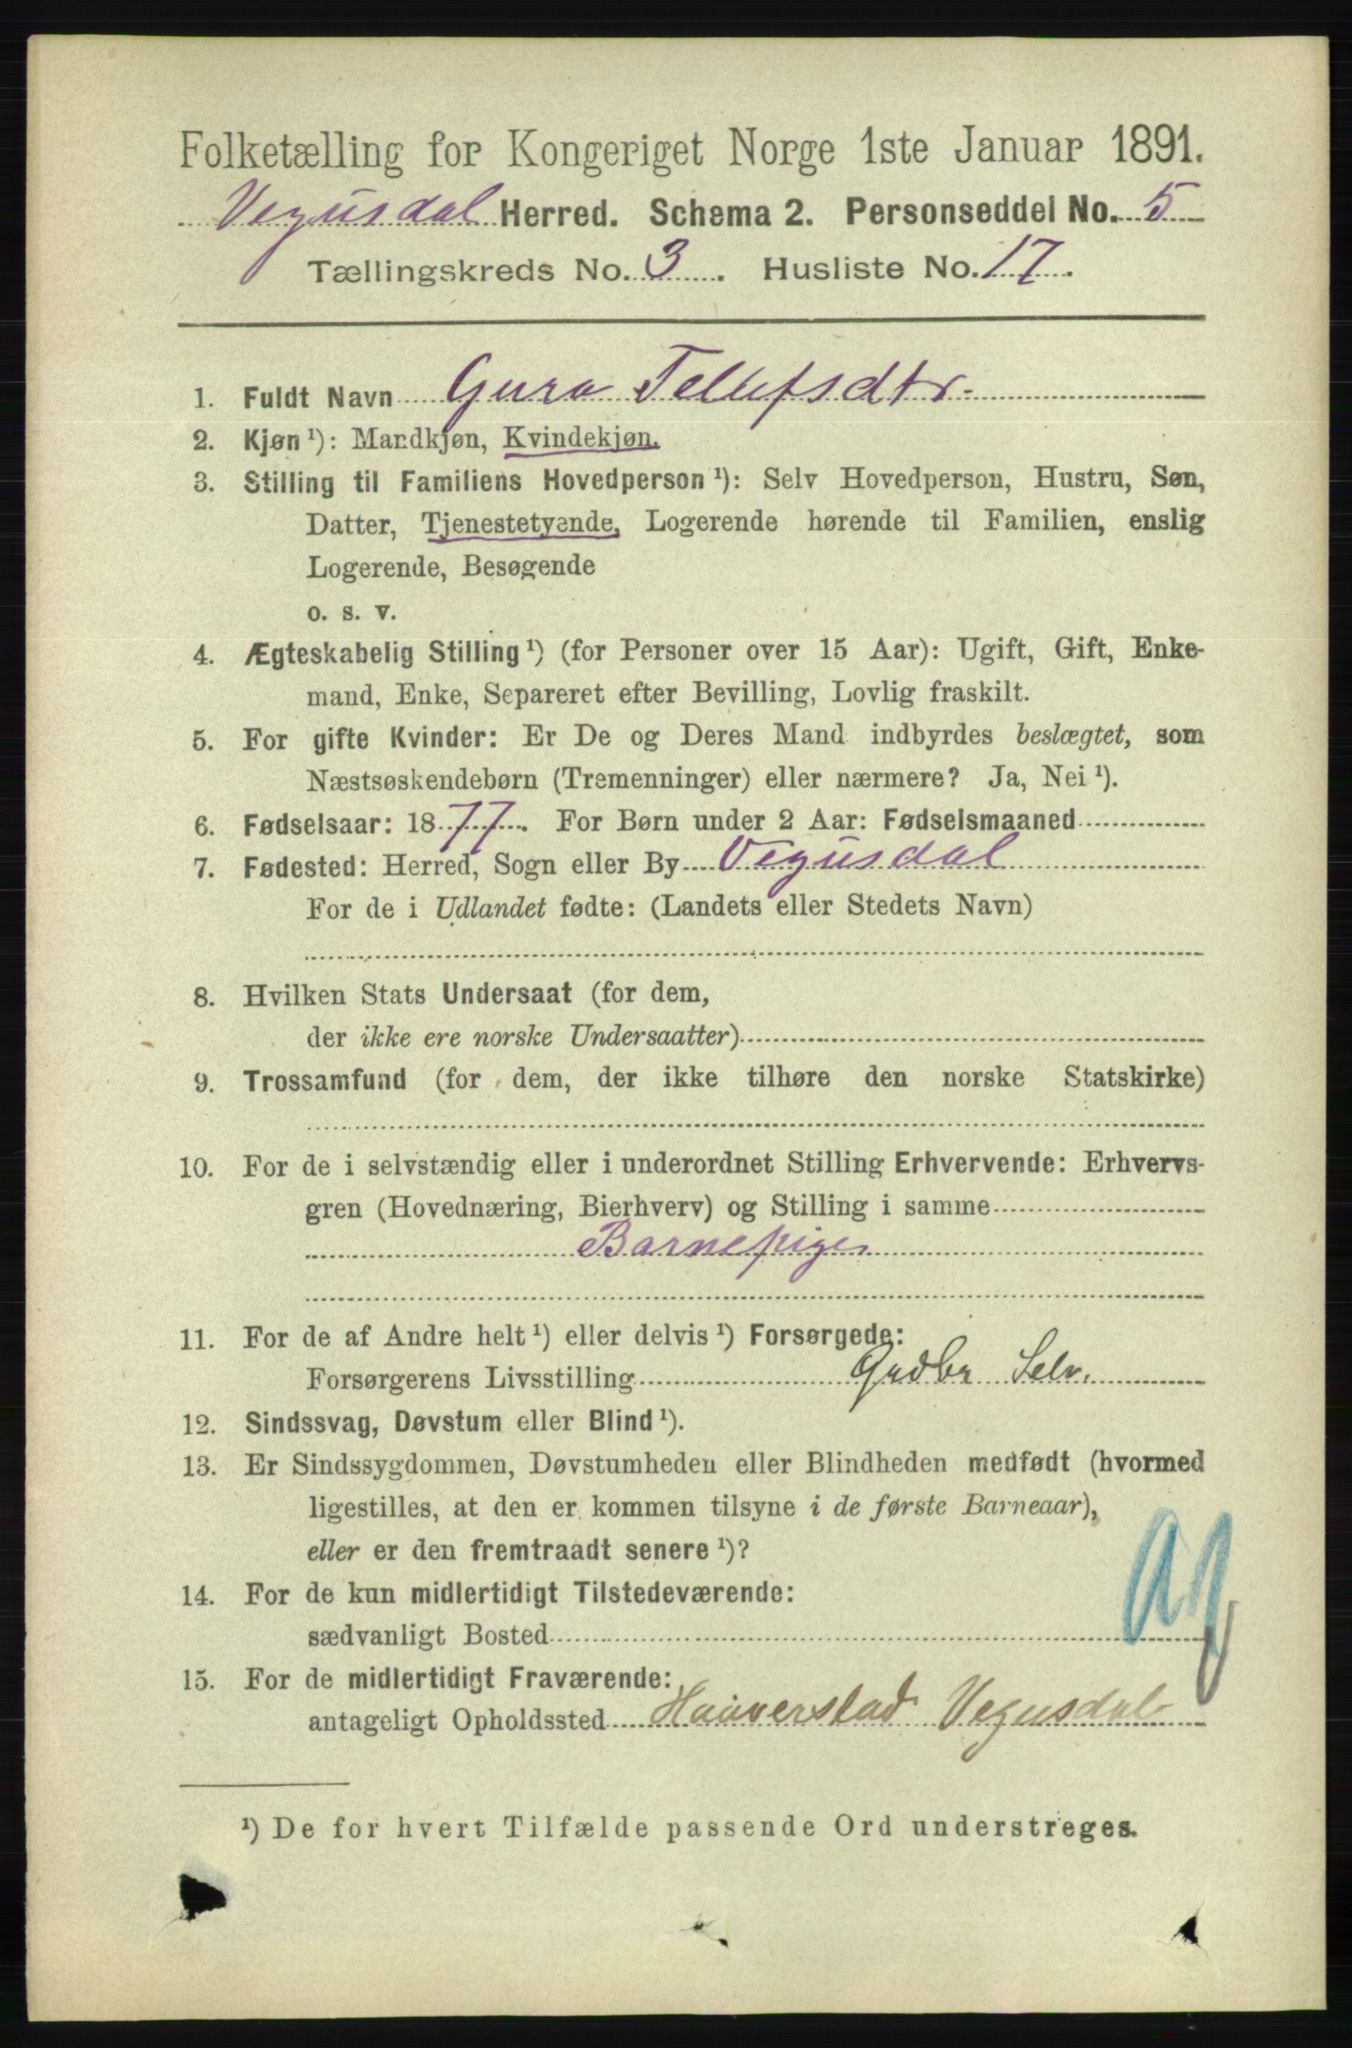 Folketælling for Kongeriget Norge 1ste Januar 1891.
Vegusdal Herred. Schema 2. Personseddel No. 5
Tællingskreds No. 3. Husliste No. 17.
1. Fuldt Navn Guro Tellefsdtr.
2. Kjøn ¹): Mandkjøn, Kvindekjøn.
3. Stilling til Familiens Hovedperson ¹): Selv Hovedperson, Hustru, Søn,
Datter, Tjenestetyende, Logerende hørende til Familien, enslig
Logerende, Besøgende
o. s. v.
4. Ægteskabelig Stilling ¹) (for Personer over 15 Aar): Ugift, Gift, Enke-
mand, Enke, Separeret efter Bevilling, Lovlig fraskilt.
5. For gifte Kvinder: Er De og Deres Mand indbyrdes beslægtet, som
Næstsøskendebørn (Tremenninger) eller nærmere? Ja, Nei ¹).
6. Fødselsaar: 1877. For Børn under 2 Aar: Fødselsmaaned
7. Fødested: Herred, Sogn eller By Vegusdal
For de i Udlandet fødte: (Landets eller Stedets Navn)
8. Hvilken Stats Undersaat (for dem,
der ikke ere norske Undersaatter)
9. Trossamfund (for dem, der ikke tilhøre den norske Statskirke)
10. For de i selvstændig eller i underordnet Stilling Erhvervende: Erhvervs-
gren (Hovednæring, Bierhverv) og Stilling i samme
Barnepige
11. For de af Andre helt ¹) eller delvis ¹) Forsørgede:
Forsørgerens Livsstilling Grdbr Selv.
12. Sindssvag, Døvstum eller Blind ¹).
13. Er Sindssygdommen, Døvstumheden eller Blindheden medfødt (hvormed
ligestilles, at den er kommen tilsyne i de første Barneaar),
eller er den fremtraadt senere ¹)?
14. For de kun midlertidigt Tilstedeværende:
sædvanligt Bosted
15. For de midlertidigt Fraværende:
antageligt Opholdssted Haaverstad Vegusdal
¹) De for hvert Tilfælde passende Ord understreges.